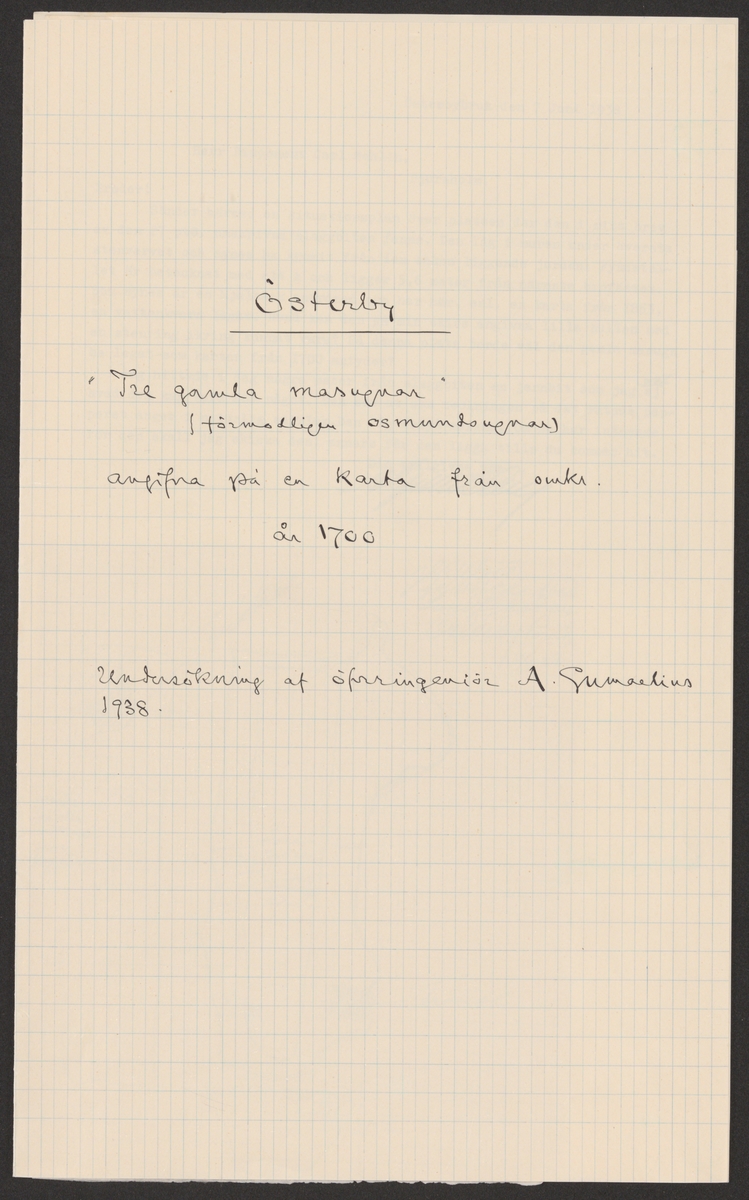 Österby
"Tre gamla masugnar"
(förmodligen osmundsugnar)
angifna på en karta från omkr.
år 1700
Undersökning af öfveringeniör A. Gumaelius
1938.